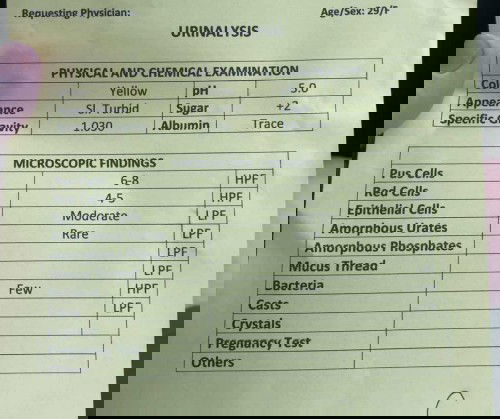 Requesting Physician: Age/Sex: 29/F
URINALYSIS
PHYSICAL AND CHEMICAL EXAMINATION
Yellow pH 5.0
Sl. Turbid Sugar +2
Specific 1.030 Albumin Trace
MICROSCOPIC FINDINGS
6-8 HPF Pus Cells
4-5 HPF Red Cells
Moderate LPF Epithelial Cells
Rare LPF Amorphous Urates
LPF Amorphous Phosphates
LPF Mucus Thread
Few HPF Bacteria
LPF Casts
Crystals
Pregnancy Test
Others